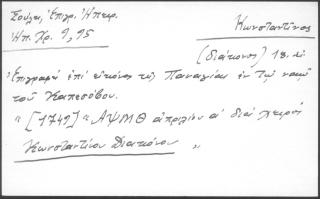 Σούλη, Ἐπιγρ. Ἠπειρ.
Ἠπ. Χρ. 9, 95
Κωνσταντῖνος
(διάκονος) 18. αἰ
Ἐπιγραφὴ ἐπὶ εἰκόνος τῆς Παναγίας ἐν τῷ ναῷ
τοῦ Καπεσόβου.
" [1749] "ΑΨΜΘ ἀπριλίου α διὰ χειρὸς
Κωνσταντίνου Διακόνου "